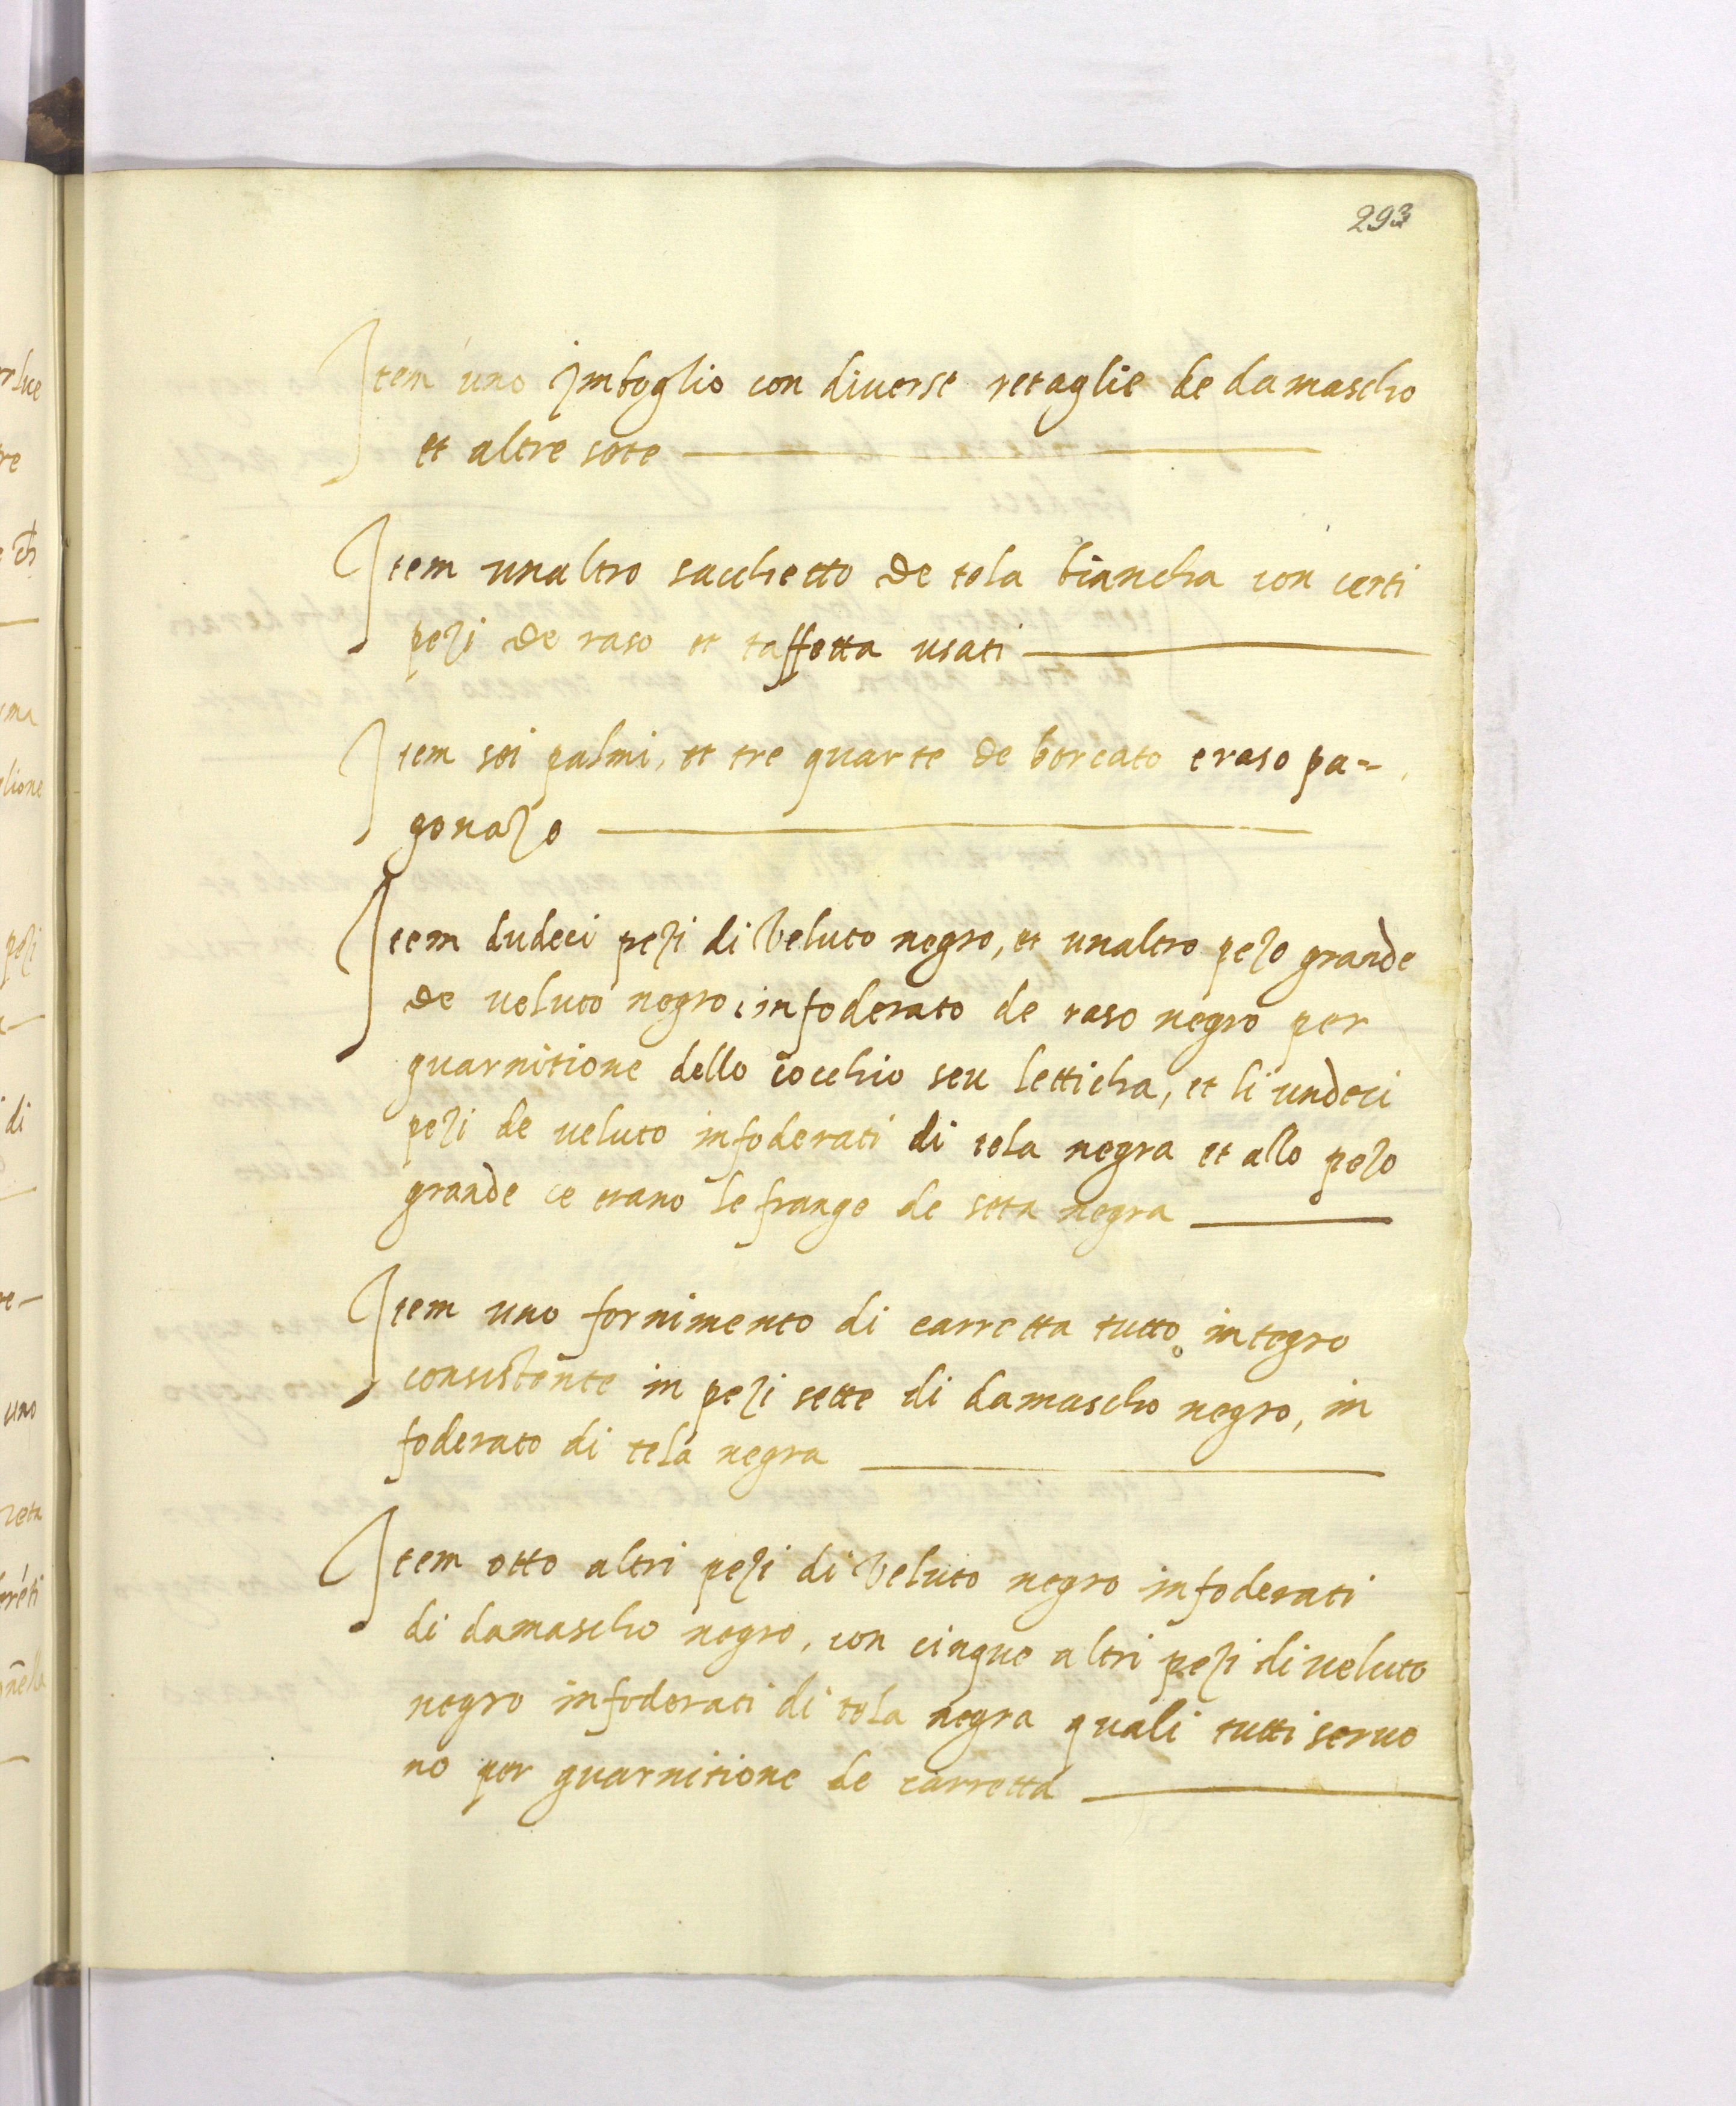 293
Item uno Imboglio con diverse retaglie de damascho
et altre sete
Item unaltro sacchetto de tela biancha con certi
pezi de raso et taffetta usati
Item sei palmi, et tre quarte de borcato e raso pa=
gonazo
Item dudeci pezi di veluto negro, et unaltro pezo grande
de veluto negro, infoderato de raso negro per
guarnitione dello cocchio seu letticha, et li undeci
pezi de veluto infoderati di tela negra et allo pezo
grande ce erano le frange de seta negra
Item uno fornimento di carretta tutto integro
consistente in pezi sette di damascho negro, in
foderato di tela negra
Item otto altri pezi di veluto negro infoderati
di damascho negro, con cinque altri pezi di veluto
negro infoderati di tela negra quali tutti serve
no per guarnitione de carretta